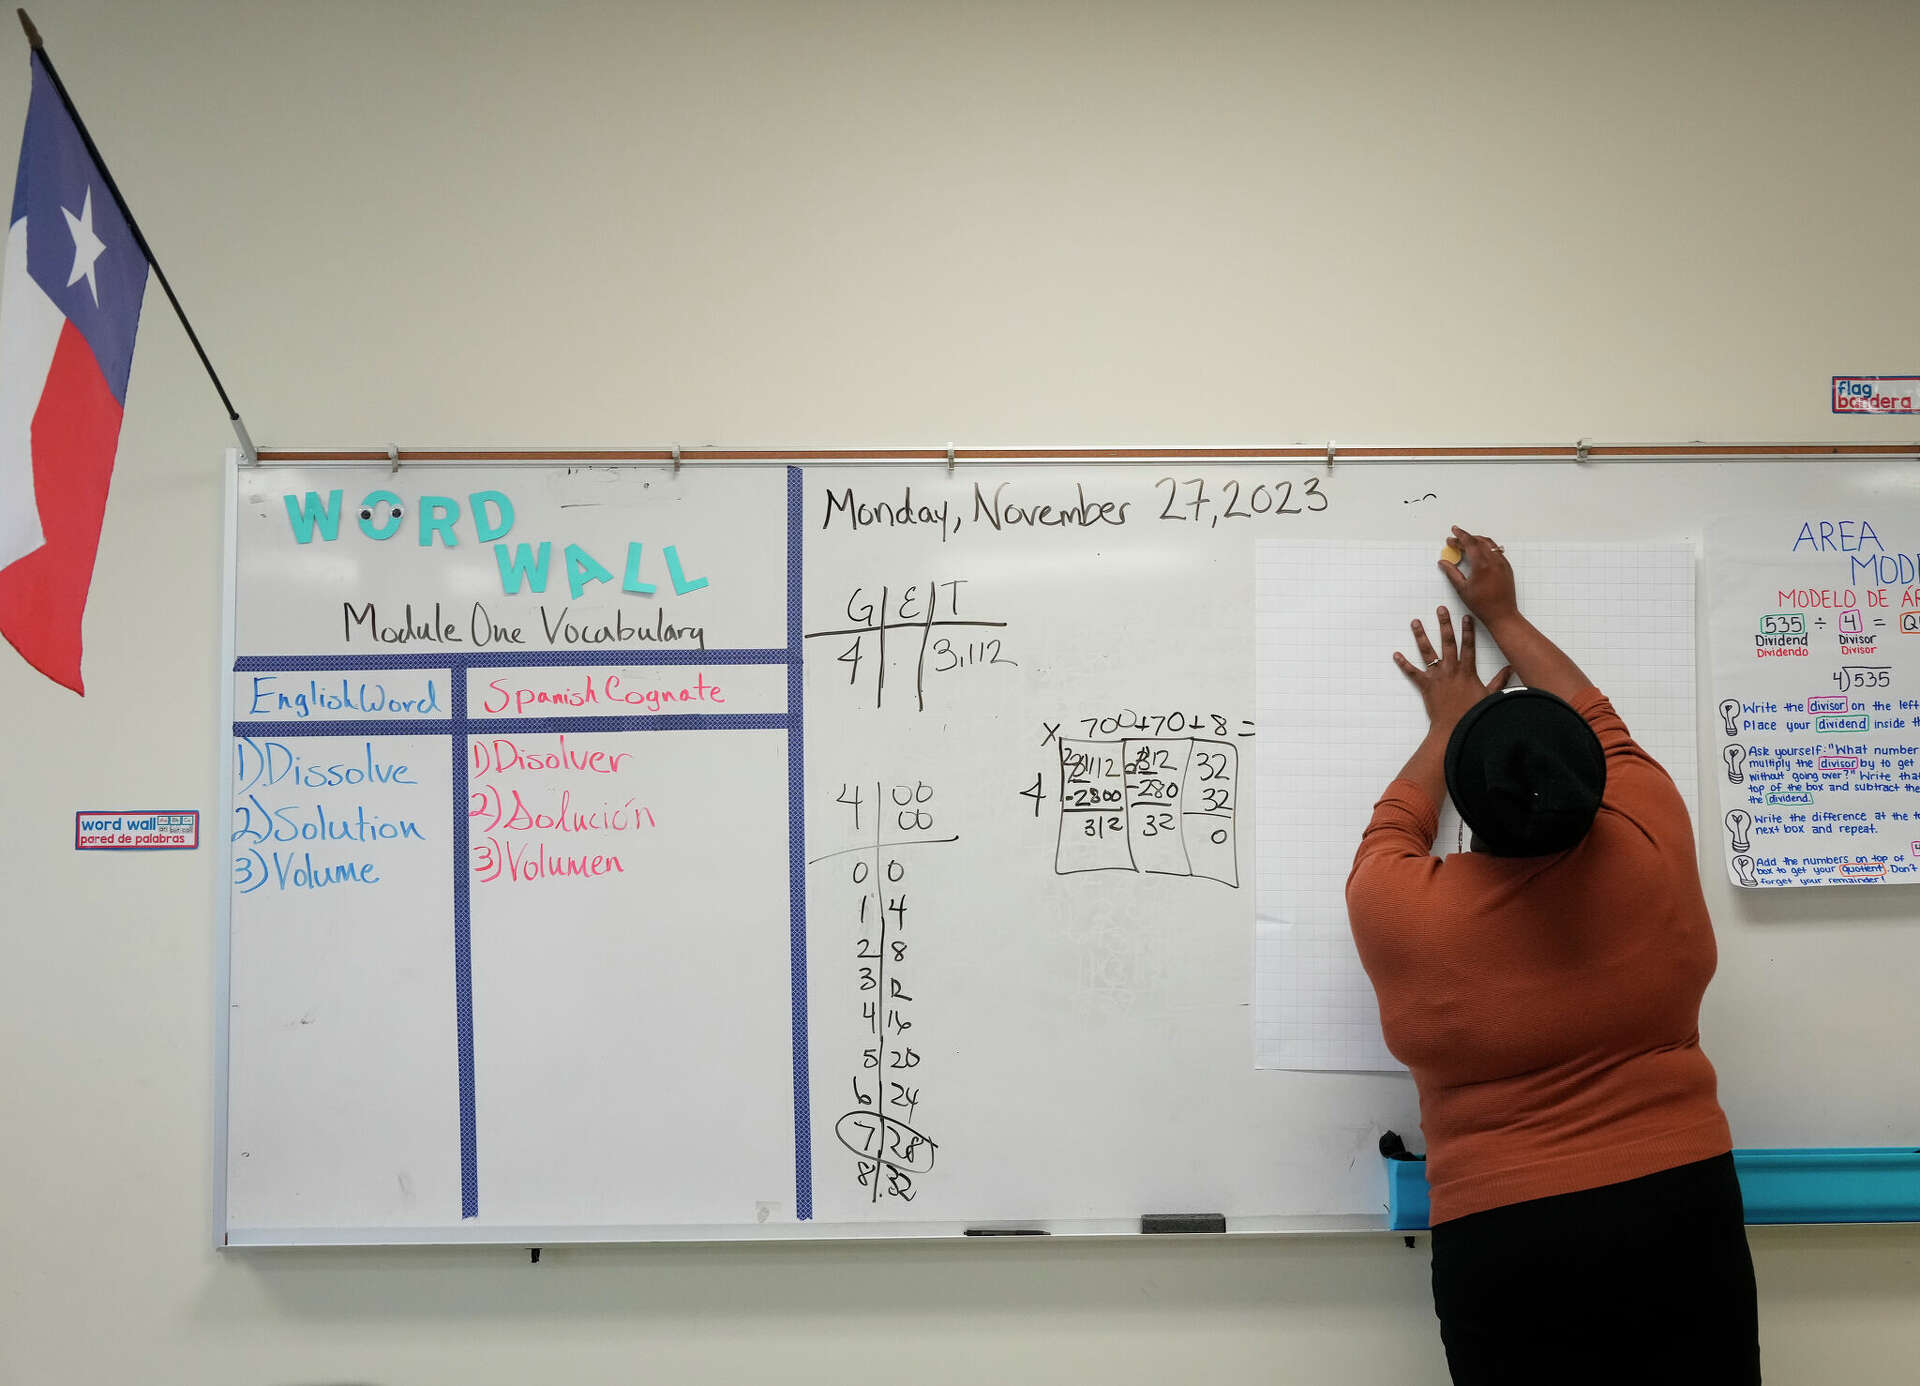 WORD
WALL
Module One Vocabulary
English Word
Spanish Cognate
1) Dissolve
1) Disolver
2) Solution
2) Solución
3) Volume
3) Volumen
word wall
pared de palabras
Monday, November 27, 2023
G E T
4 3,112
4 00
00
0 0
1 4
2 8
3 12
4 16
5 20
6 24
7 28
8 32
x 700+70+8=
4
-2800 -280 32
312 32 0
flag
bandera
AREA
MODELO DE
535 ÷ 4 =
Dividend Divisor
Dividendo Divisor
4)535
Write the divisor on the left
Place your dividend inside
Ask yourself: "What number
multiply the divisor by to get
without going over?" Write
top of the box and subtract
the dividend.
Write the difference at the
next box and repeat.
Add the numbers on top of
box to get your quotient. Don't
forget your remainder!